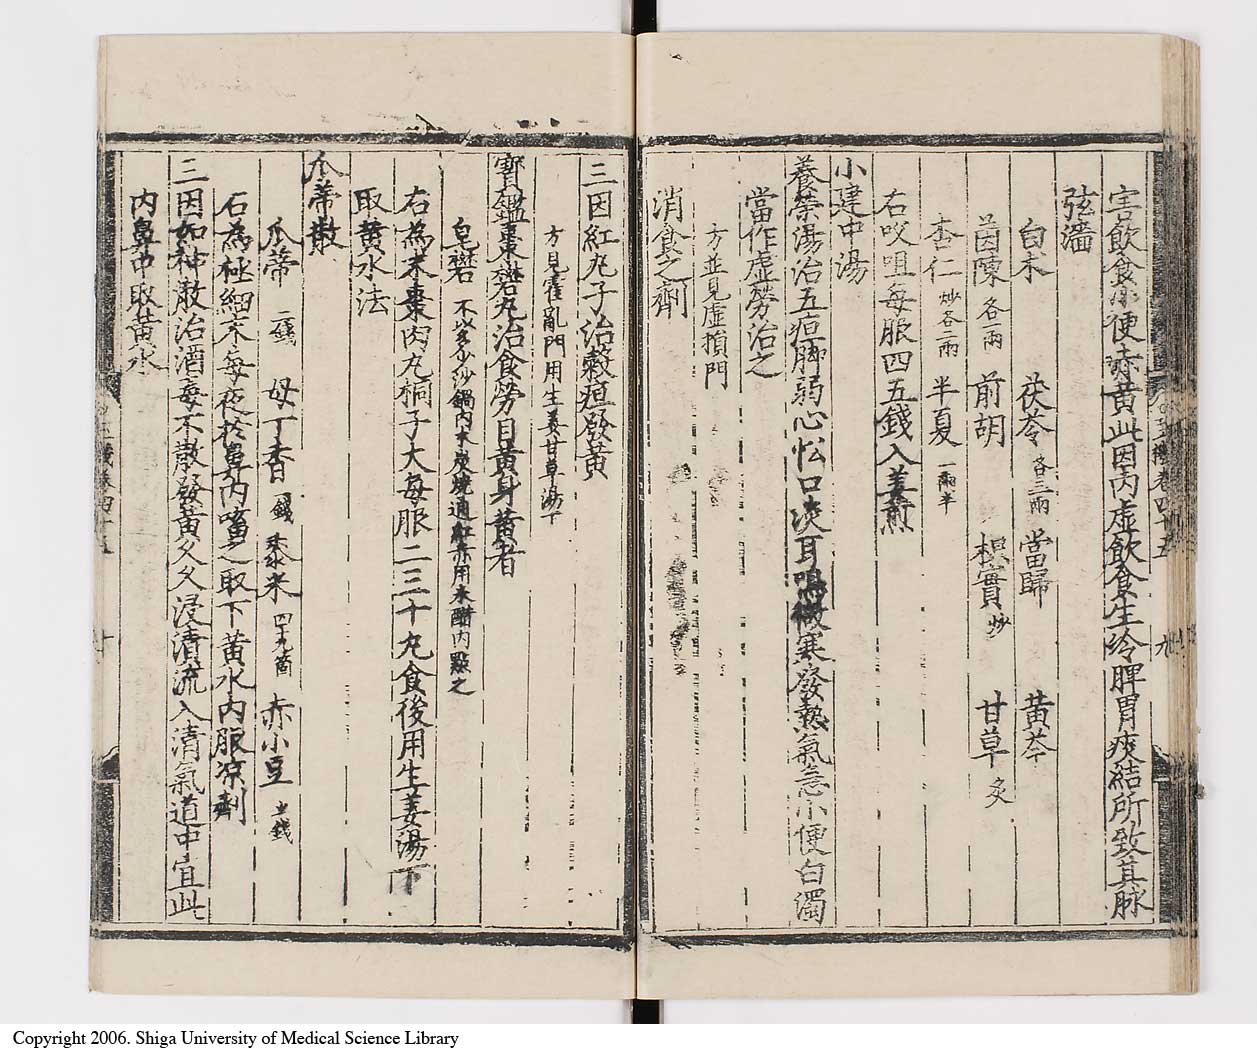 害飲食小便赤黃此因内虛飲食生冷脾胃痰結所致其脉
弦濇
白朮 茯苓各三兩 當歸 黃芩
茵陳各一兩 前胡 枳實炒 甘草炙
杏仁炒各二兩 半夏一兩半
右㕮咀每服四五錢入姜煎
小建中湯
養榮湯治五疸脚弱心忪口淡耳鳴微寒發熱氣急小便白濁
當作虛勞治之
方並見虛損門
消食之劑
三因紅丸子治穀疸發黃
方見霍亂門用生姜甘草湯下
寶鑑棗礬丸治食勞目黃身黃者
皂礬不以多少砂鍋内木炭燒通紅赤用米醋内點之
右為末棗肉丸桐子大每服二三十丸食後用生姜湯下
取黃水法
瓜蒂散
瓜蒂二錢 母丁香一錢 黍米四十九箇 赤小豆五錢
右為極細末每夜於鼻内㗜之取下黃水内服凉劑
三因如神散治酒毒不散發黃久久浸漬流入清氣道中宜此
内鼻中取黃水
九
十
Copyright 2006. Shiga University of Medical Science Library